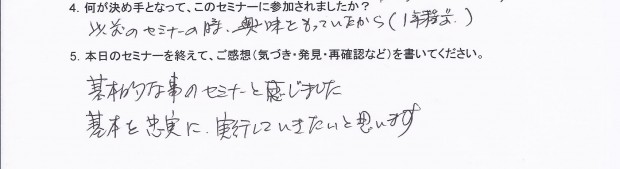 4. 何が決め手となって、このセミナーに参加されましたか？
以前のセミナーの時、興味をもっていたから（1年程前．）
5. 本日のセミナーを終えて、ご感想（気づき・発見・再確認など）を書いてください。
基本的な事のセミナーと感じました
基本を忠実に、実行していきたいと思います